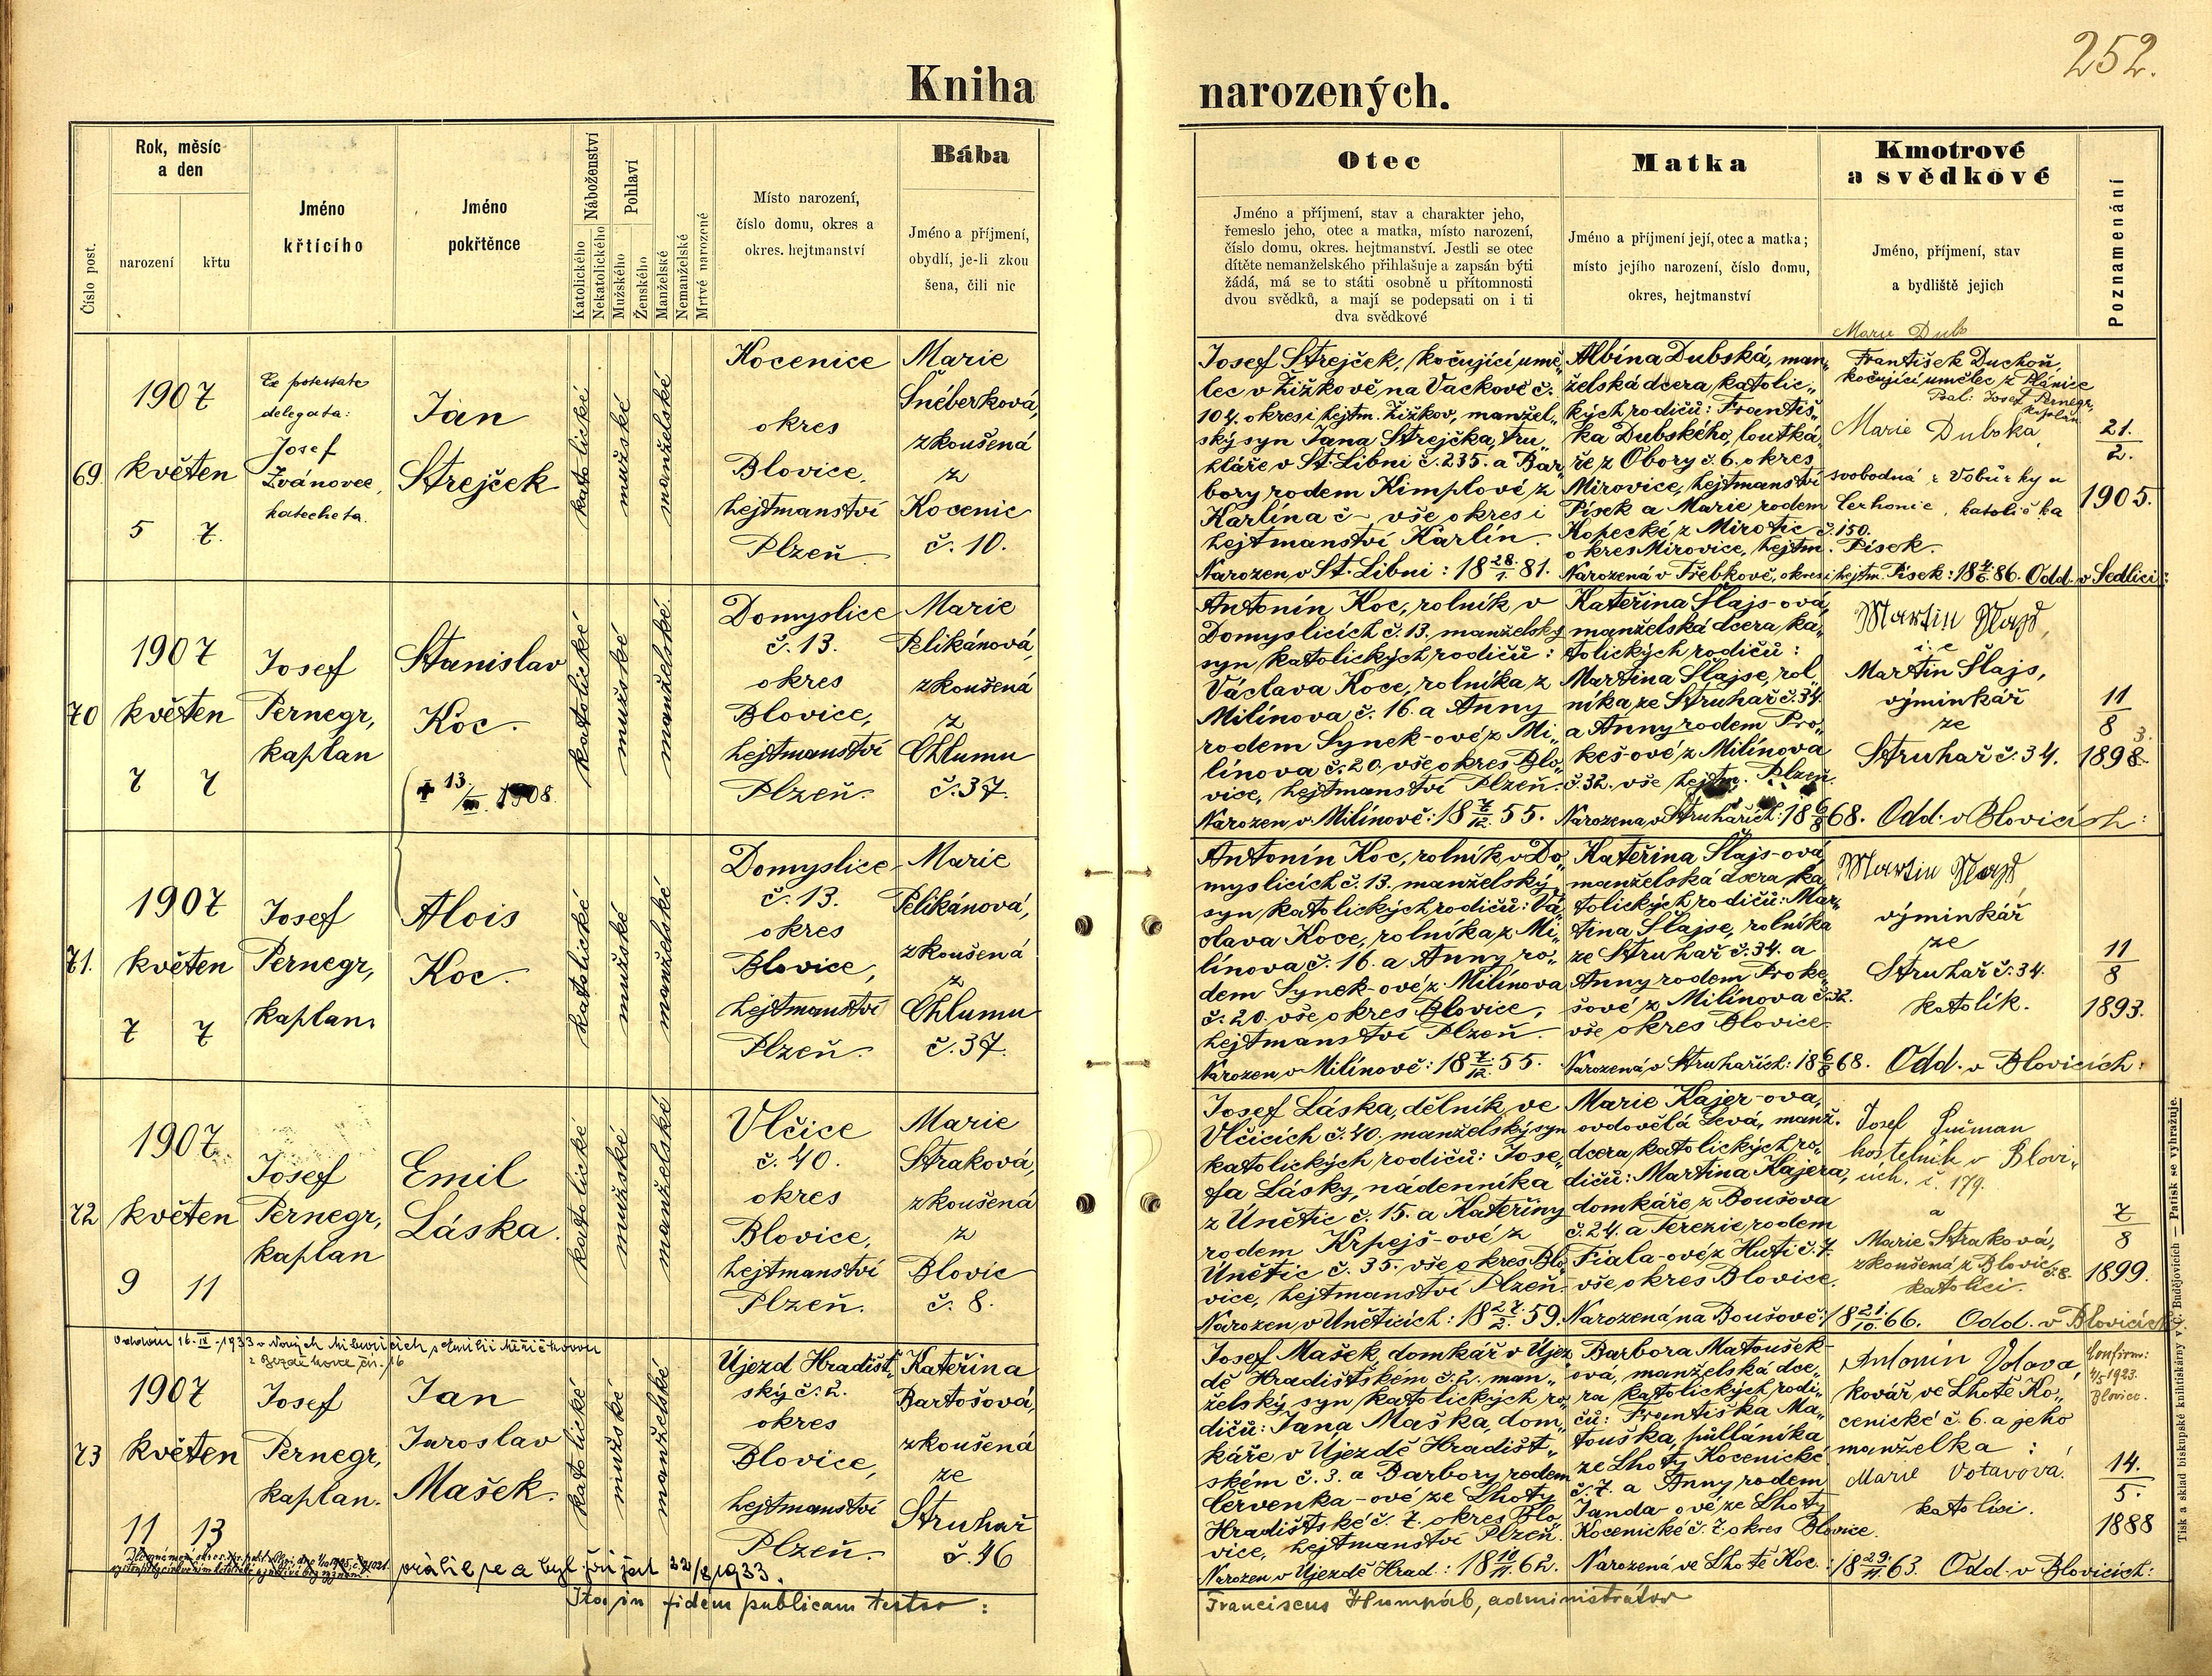 252.
Kniha narozených.
Číslo post.
Rok, měsíc
a den
narození
křtu
Jméno
křtícího
Jméno
pokřtěnce
Náboženství
Katolického
Nekatolického
Pohlaví
Mužského
Ženského
Manželské
Nemanželské
Mrtvě narozené
Místo narození,
číslo domu, okres a
okres. hejtmanství
Bába
Jméno a příjmení,
obydlí, je-li zkou
šena, čili nic
Otec
Jméno a příjmení, stav a charakter jeho,
řemeslo jeho, otec a matka, místo narození,
číslo domu, okres. hejtmanství. Jestli se otec
dítěte nemanželského přihlašuje a zapsán býti
žádá, má se to státi osobně u přítomnosti
dvou svědků, a mají se podepsati on i ti
dva svědkové
Matka
Jméno a příjmení její, otec a matka;
místo jejího narození, číslo domu,
okres, hejtmanství
Kmotrové
a svědkové
Jméno, příjmení, stav
a bydliště jejich
Poznamenání
69.
1907
květen
5 7.
Ex potestate
delegata:
Josef
Žvánovec,
katecheta.
Jan
Strejček
katolické
mužské
manželské
Kocenice
okres
Blovice,
hejtmanství
Plzeň.
Marie
Šnéberková,
zkoušená
z
Kocenic
č. 10.
Josef Strejček, kočující umě„
lec v Žižkově na Vackově č.
104. okres i hejtm. Žižkov, manžel„
ský syn Jana Strejčka, tru„
hláře v St. Libni č. 235. a Bar„
bory rodem Kimplové z
Karlína č – vše okres i
hejtmanství Karlín.
Narozen v St. Libni: 18 28./1. 81.
Albína Dubská, man„
želská dcera katolic„
kých rodičů: Františ„
ka Dubského, loutká„
ře z Obory č. 6. okres
Mirovice, hejtmanství
Písek a Marie rodem
Kopecké z Mirotic č. 150.
okres Mirovice, hejtm. Písek.
Narozená v Třebkově, okres i hejtm. Písek: 18 86. Odd. v Sedlici:
Marie Dub
František Duchoň,
kočující umělec z Plánice
Josef Pernegr,
kaplan
Marie Dubska,
svobodná
Cerhonic, katolička
21.
2.
1905.
70
1907
květen
7 7
Josef
Pernegr,
kaplan
Stanislav
Koc.
✝ 13./III. 1908.
katolické
mužské
manželské.
Domyslice
č. 13.
okres
Blovice,
hejtmanství
Plzeň.
Marie
Pelikánová,
zkoušená
z
Chlumu
č. 37.
Antonín Koc, rolník v
Domyslicích č. 13. manželský
syn katolických rodičů:
Václava Koce, rolníka z
Milínova č. 16. a Anny
rodem Synek-ové z Mi„
línova č. 20. vše okres Blo„
vice, hejtmanství Plzeň.
Narozen v Milínově: 18 7./12. 55.
Kateřina Šlajs-ová,
manželská dcera ka„
tolických rodičů:
Martina Šlajse, rol„
níka ze Struhař č. 34.
a Anny rodem Pro„
keš-ové z Milínova
č. 32. vše hejtm. Plzeň.
Narozena v Struhařích: 18 6/8 68. Odd. v Blovicích:
i. e.
Martin Šlajs,
výminkář
ze
Struhař č. 34.
11
8
1898
3.
71.
1907
květen
7 7
Josef
Pernegr,
kaplan.
Alois
Koc.
katolické
mužské
manželské
Domyslice
č. 13.
okres
Blovice,
hejtmanství
Plzeň.
Marie
Pelikánová,
zkoušená
z
Chlumu
č. 37.
Antonín Koc, rolník v Do„
myslicích č. 13. manželský
syn katolických rodičů: Vá„
clava Koce, rolníka z Mi„
línova č. 16. a Anny ro„
dem Synek-ové z Milínova
č. 20. vše okres Blovice,
hejtmanství Plzeň.
Narozen v Milínově: 18 7./12. 55.
Kateřina Šlajs-ová,
manželská dcera ka„
tolických rodičů: Mar„
tina Šlajse, rolníka
ze Struhař č. 34. a
Anny rodem Proke„
šové z Milínova č. 32.
vše okres Blovice.
Narozená v Struhařích: 18 6/8 68. Odd. v Blovicích:
výminkář
ze
Struhař č. 34.
katolík.
11
8
1893.
72
1907.
květen
9 11
Josef
Pernegr,
kaplan
Emil
Láska.
katolické
mužské
manželské
Vlčice
č. 40.
okres
Blovice,
hejtmanství
Plzeň.
Marie
Straková,
zkoušená
z
Blovic
č. 8.
Josef Láska, dělník ve
Vlčicích č. 40. manželský syn
katolických rodičů: Jose„
fa Lásky, nádenníka
z Únětic č. 15. a Kateřiny
rodem Krpejš-ové z
Únětic č. 35. vše okres Blo„
vice, hejtmanství Plzeň.
Narozen v Úněticích: 18 27./2. 59.
Marie Kajer-ova,
ovdovělá Levá, manž.
dcera katolických ro„
dičů: Martina Kajera,
domkáře z Boušova
č. 24. a Terezie rodem
Fiala-ové z Hutí č. 7.
vše okres Blovice.
Narozená na Boušově: 18 21./10. 66. Odd. v Blovicích
Josef Fučman
kostelník v Blovi„
cích. č. 179.
a
Marie Straková,
zkoušená z Blovic
č. 8.
katolíci.
7
8
1899.
73
16. IV. 1933
1907
květen
11 13
Josef
Pernegr,
kaplan.
Jan
Jaroslav
Mašek.
katolické
mužské
manželské
Újezd Hradišt„
ský č. 2.
okres
Blovice,
hejtmanství
Plzeň.
Kateřina
Bartošová,
zkoušená
ze
Struhař
č. 46
Josef Mašek, domkář v Újez„
dě Hradištském č. 2. man„
želský syn katolických ro„
dičů: Jana Maška, dom„
káře v Újezdě Hradišt„
ském č. 3. a Barbory rodem
Červenka-ové ze Lhoty
Hradištské č. 7. okres Blo„
vice, hejtmanství Plzeň.
Narozen v Újezdě Hrad.: 18 62.
Barbora Matoušek-
ová, manželská dce„
ra katolických rodi„
čů: Františka Ma„
touška, půlláníka
ze Lhoty Kocenické
č. 7. a Anny rodem
Janda-ové ze Lhoty
Kocenické č. 7. okres Blovice.
Narozená ve Lhotě Koc.: 18 63. Odd. v Blovicích:
Antonín Votava,
kovář ve Lhotě Ko„
cenické č. 6. a jeho
manželka:
Marie Votavová.
katolíci.
Confirm:
1923.
Blovice.
14.
5.
1888
vrátil se a byl přijat 22/8 1933.
Ita in fidem publicam testor:
Franciscus Humpáb, administrátor
Tisk a sklad biskupské knihtiskárny v Č. Budějovicích — Patisk se vyhražuje.